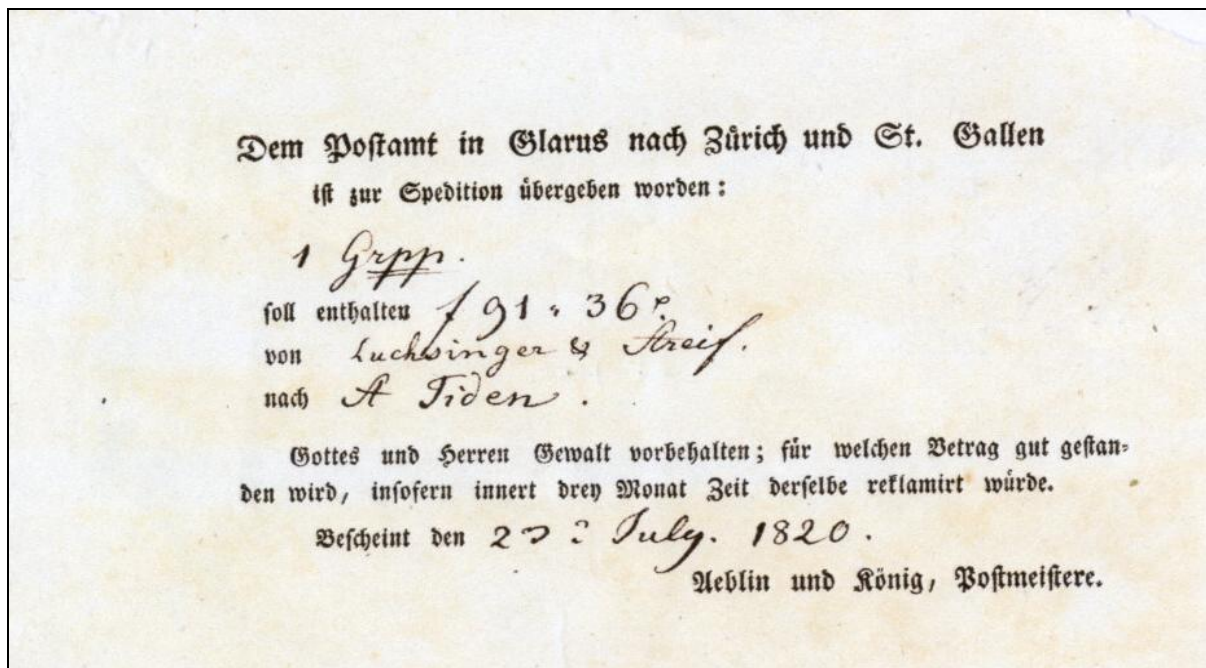 Dem Postamt in Glarus nach Zürich und St. Gallen
ist zur Spedition übergeben worden:
1 Grpp.
soll enthalten f 91 " 36
von Luchsinger & Streif.
nach A Tiden.
Gottes und Herren Gewalt vorbehalten; für welchen Betrag gut gestan-
den wird, insofern innert drey Monat Zeit derselbe reklamirt würde.
Bescheint den July. 1820.
Aeblin und König, Postmeistere.